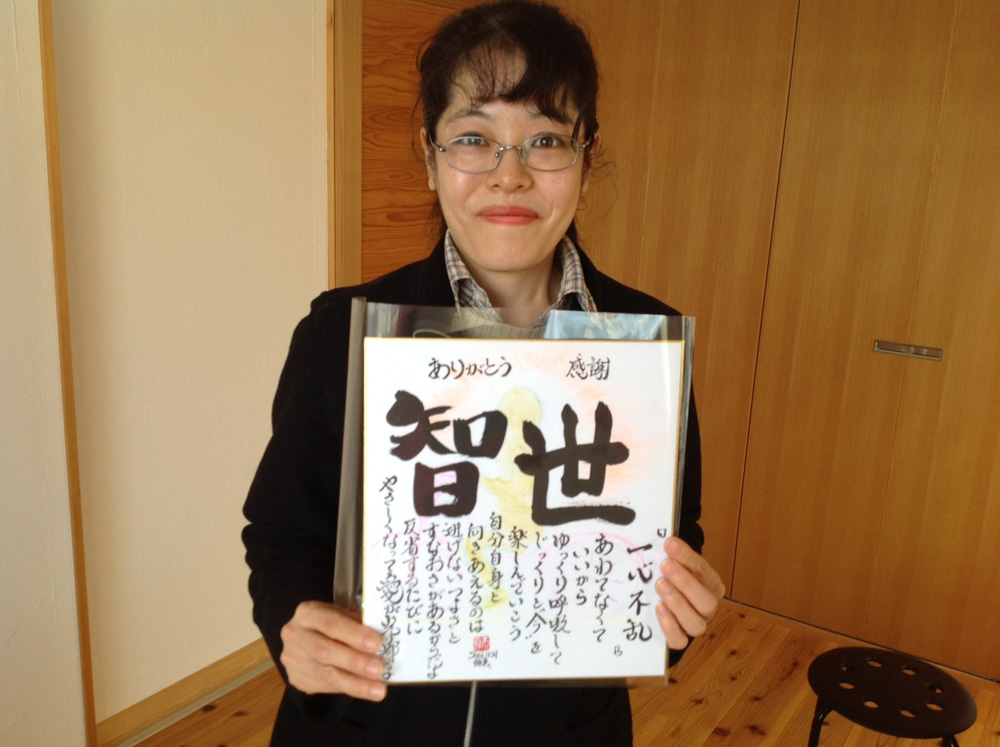 ありがとう 感謝
智世
「一心不乱」
あわてなくて
いいから
ゆっくり呼吸して
じっくりと〝今〟を
楽しんでいこう
自分自身と
向きあえるのは
逃げないつよさと
すなおさがあるからだよ
反省するたびに
やさしくなって